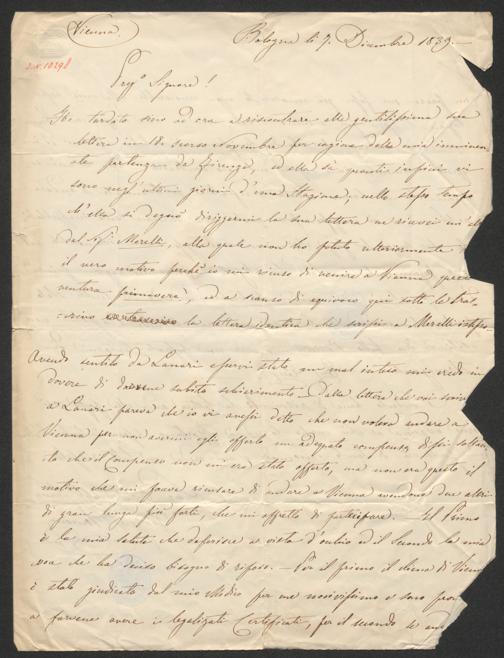 Vienna.
Bologna li 7. Dicembre 1839.
Preg.º Signore!
Ho tardato sino ad ora a riscontrare alla gentilissima sua
lettera in 18 scorso Novembre per cagione della mia imminen
te partenza da Firenze, ed ella sa quanti impicci vi
sono negl'ultimi giorni d'una Stagione, nello stesso tempo
ch'ella si degnò diriggermi la sua lettera ne ricevei un'al
del Sig.r Merelli, alla quale non ho potuto ulteriormente
il vero motivo perchè io mi ricuso di venire a Vienna
ventura primavera, ed a scanso di equivoco qui sotto le tras
crivo la lettera identica che scrissi a Merelli istesso
Avendo sentito da Lanari esservi stato un mal inteso mi credo in
dovere di darvene subito schiarimento. Dalla lettera che voi
a Lanari pareva che io vi avessi detto che non voleva andare a
Vienna per non avermi egli offerto un adequato compenso,
to che il compenso non m'era stato offerto, ma non era questo il
motivo che mi faceva ricusare di andare a Vienna avendone due altri
di gran lunga più forti, che mi affretto di participare. Il Primo
è la mia salute che deperisce a vista d'occhio ed il secondo la mia
voce che ha deciso bisogno di riposo. Per il primo il clima di Vienna
è stato giudicato dal mio Medico per me nocivissimo e sono
a farvene avere i legalizati Certificati, per il secondo